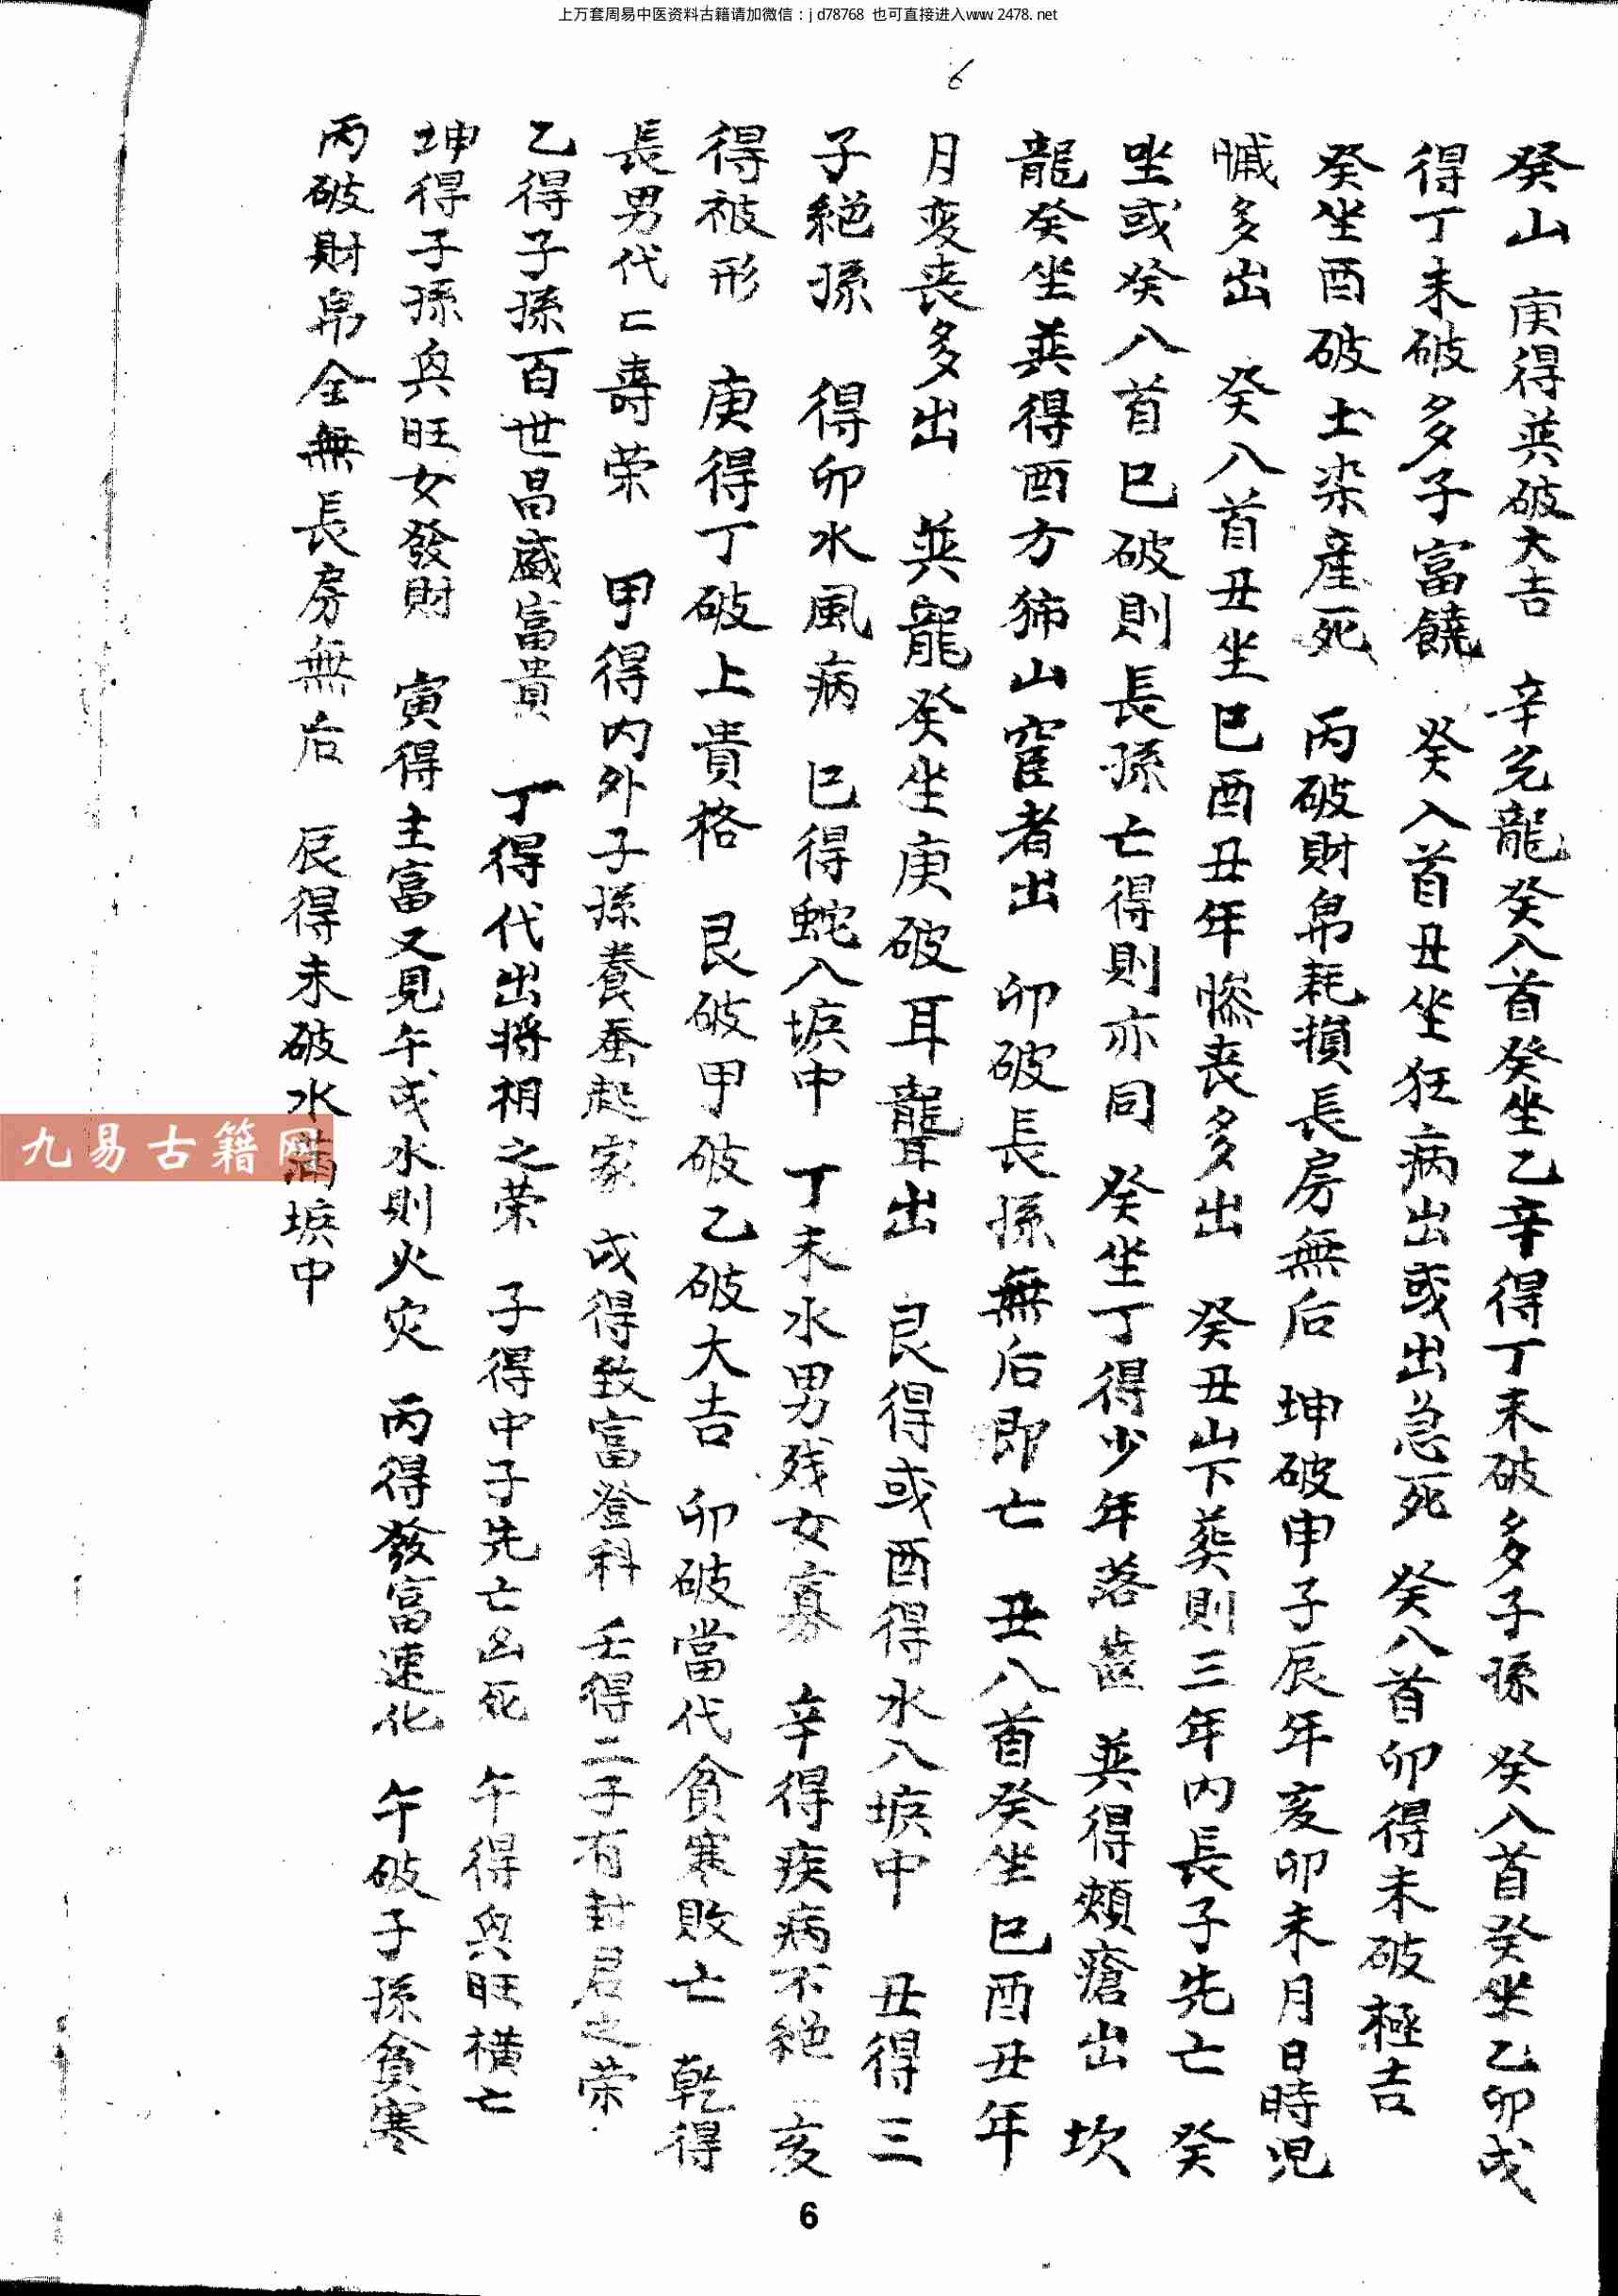 上万套周易中医资料古籍请加微信：jd78768 也可直接进入www.2478.net
6
癸山 庚得巽破大吉 辛兌龍癸入首癸坐乙辛得丁未破多子孫 癸入首癸坐乙卯戌
得丁未破多子富饒 癸入首丑坐狂病出或出急死 癸入首卯得未破極吉
癸坐酉破土染産死 丙破財帛耗損長房無后 坤破申子辰年亥卯未月日時児
慽多出 癸入首丑坐巳酉丑年惨丧多出 癸丑山下葬則三年内長子先亡 癸
坐或癸入首巳破則長孫亡得則亦同 癸坐丁得少年落齒 巽得頰瘡出 坎
龍癸坐巽得酉方狮山窟者出 卯破長孫無后即亡 丑入首癸坐巳酉丑年
月変丧多出 巽龍癸坐庚破耳聾出 艮得或酉得水入塚中 丑得三
子絕孫 得卯水風病 巳得蛇入塚中 丁未水男残女寡 辛得疾病不絕 亥
得被形 庚得丁破上貴格 艮破甲破乙破大吉 卯破當代貧寒敗亡 乾得
長男代亡壽荣 甲得内外子孫養蚕起家 戌得致富登科 壬得二子有封君之荣
乙得子孫百世昌盛富貴 丁得代出将相之荣 子得中子先亡凶死 午得與旺横亡
坤得子孫與旺女發財 寅得主富又見午戌水則火灾 丙得發富速化 午破子孫貧寒
丙破財帛全無長房無后 辰得未破水满塚中
九易古籍网
6